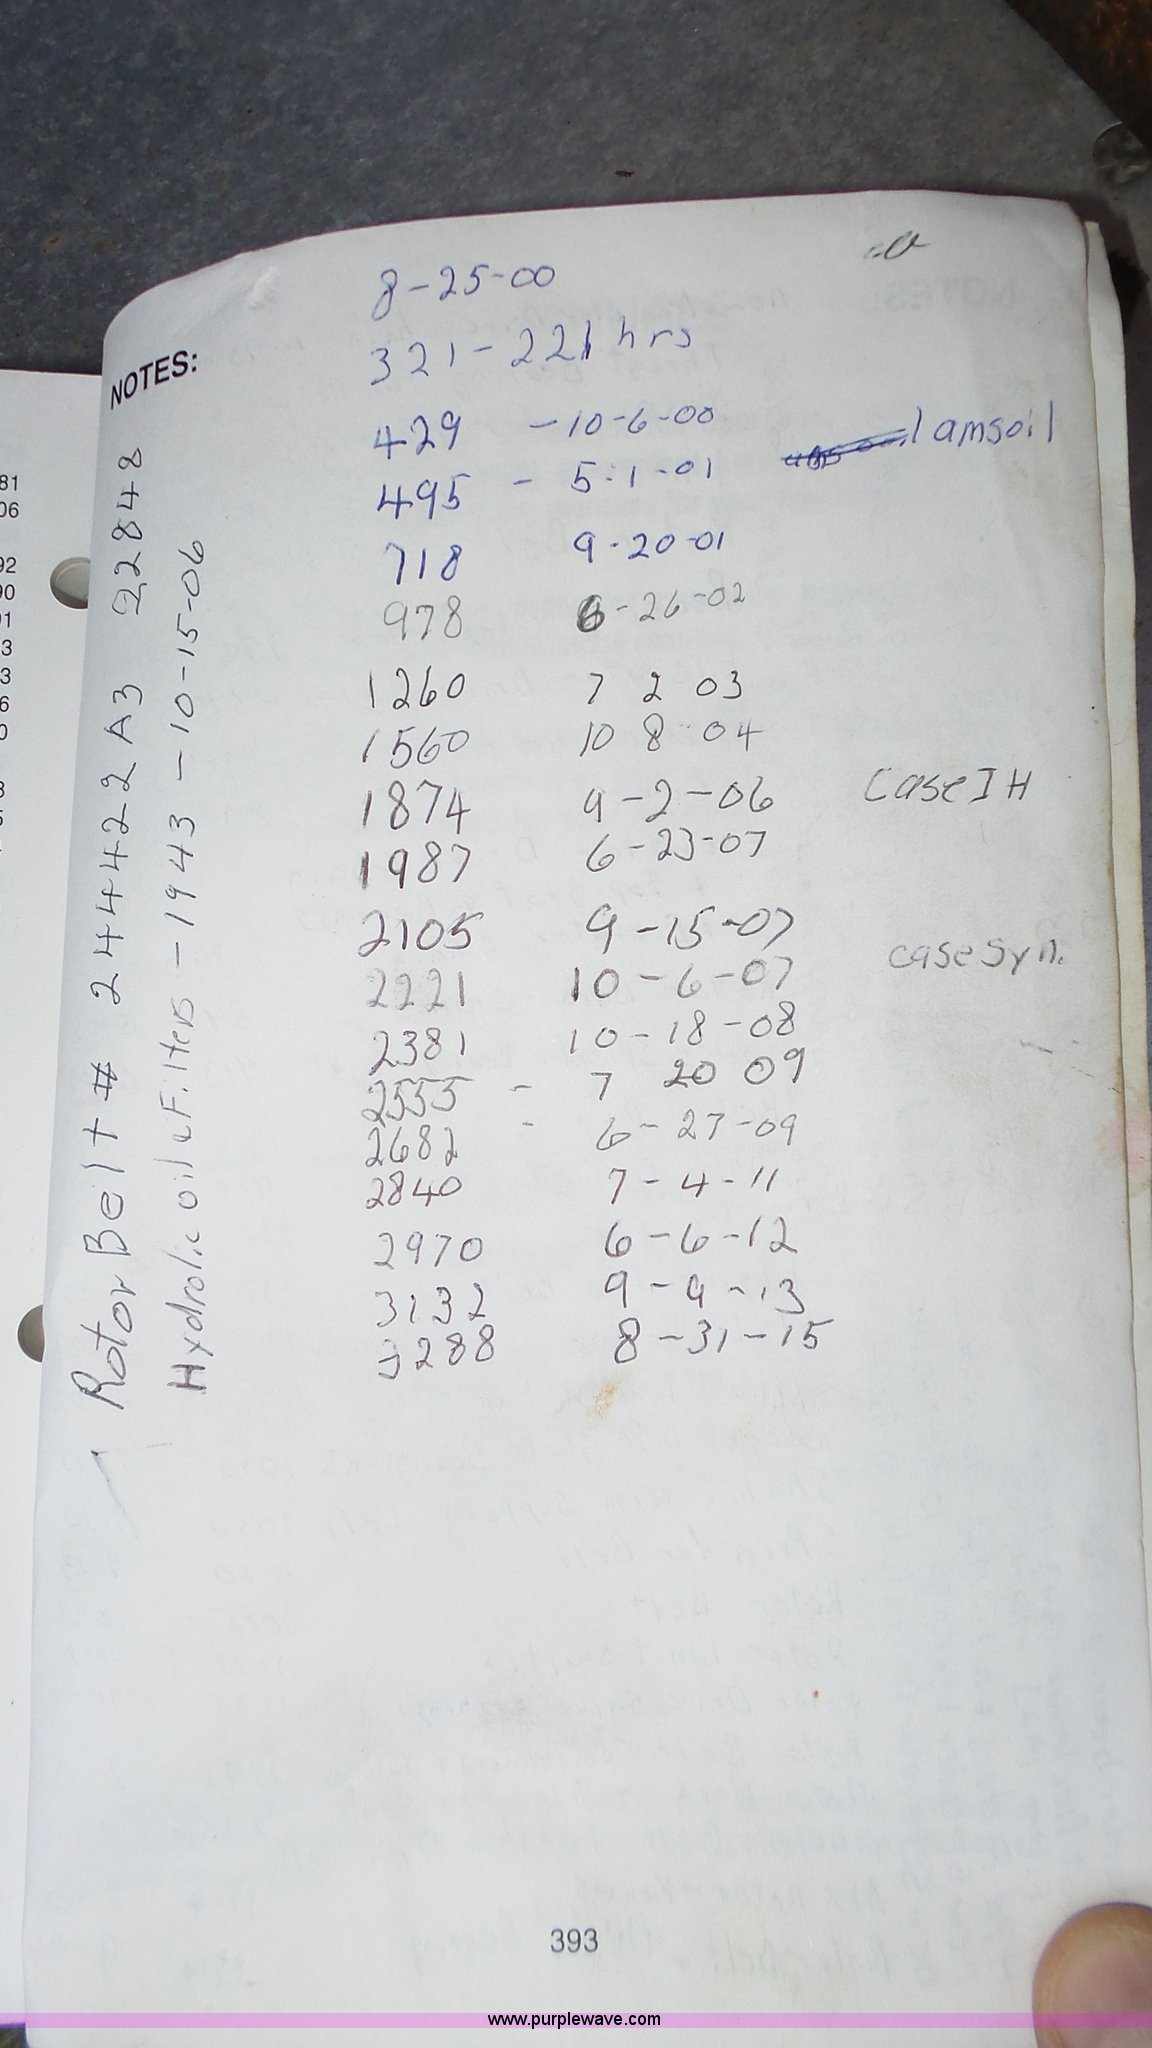 8-25-00
321-221 hrs
429 -10-6-00
495 - 5-1-01 1 amsoil
718 9-20-01
978 6-26-02
1260 7 2 03
1560 10 8 04
1874 9-2-06 Case IH
1987 6-23-07
2105 9-15-07
2221 10-6-07 case syn.
2381 10-18-08
2555 - 7 20 09
2682 - 6-27-09
2840 7-4-11
2970 6-6-12
3132 9-9-13
3288 8-31-15
NOTES:
Rotor Belt # 244422A3 22848
Hydrolic oil & Filters -1943-10-15-06
81
06
92
90
393
www.purplewave.com